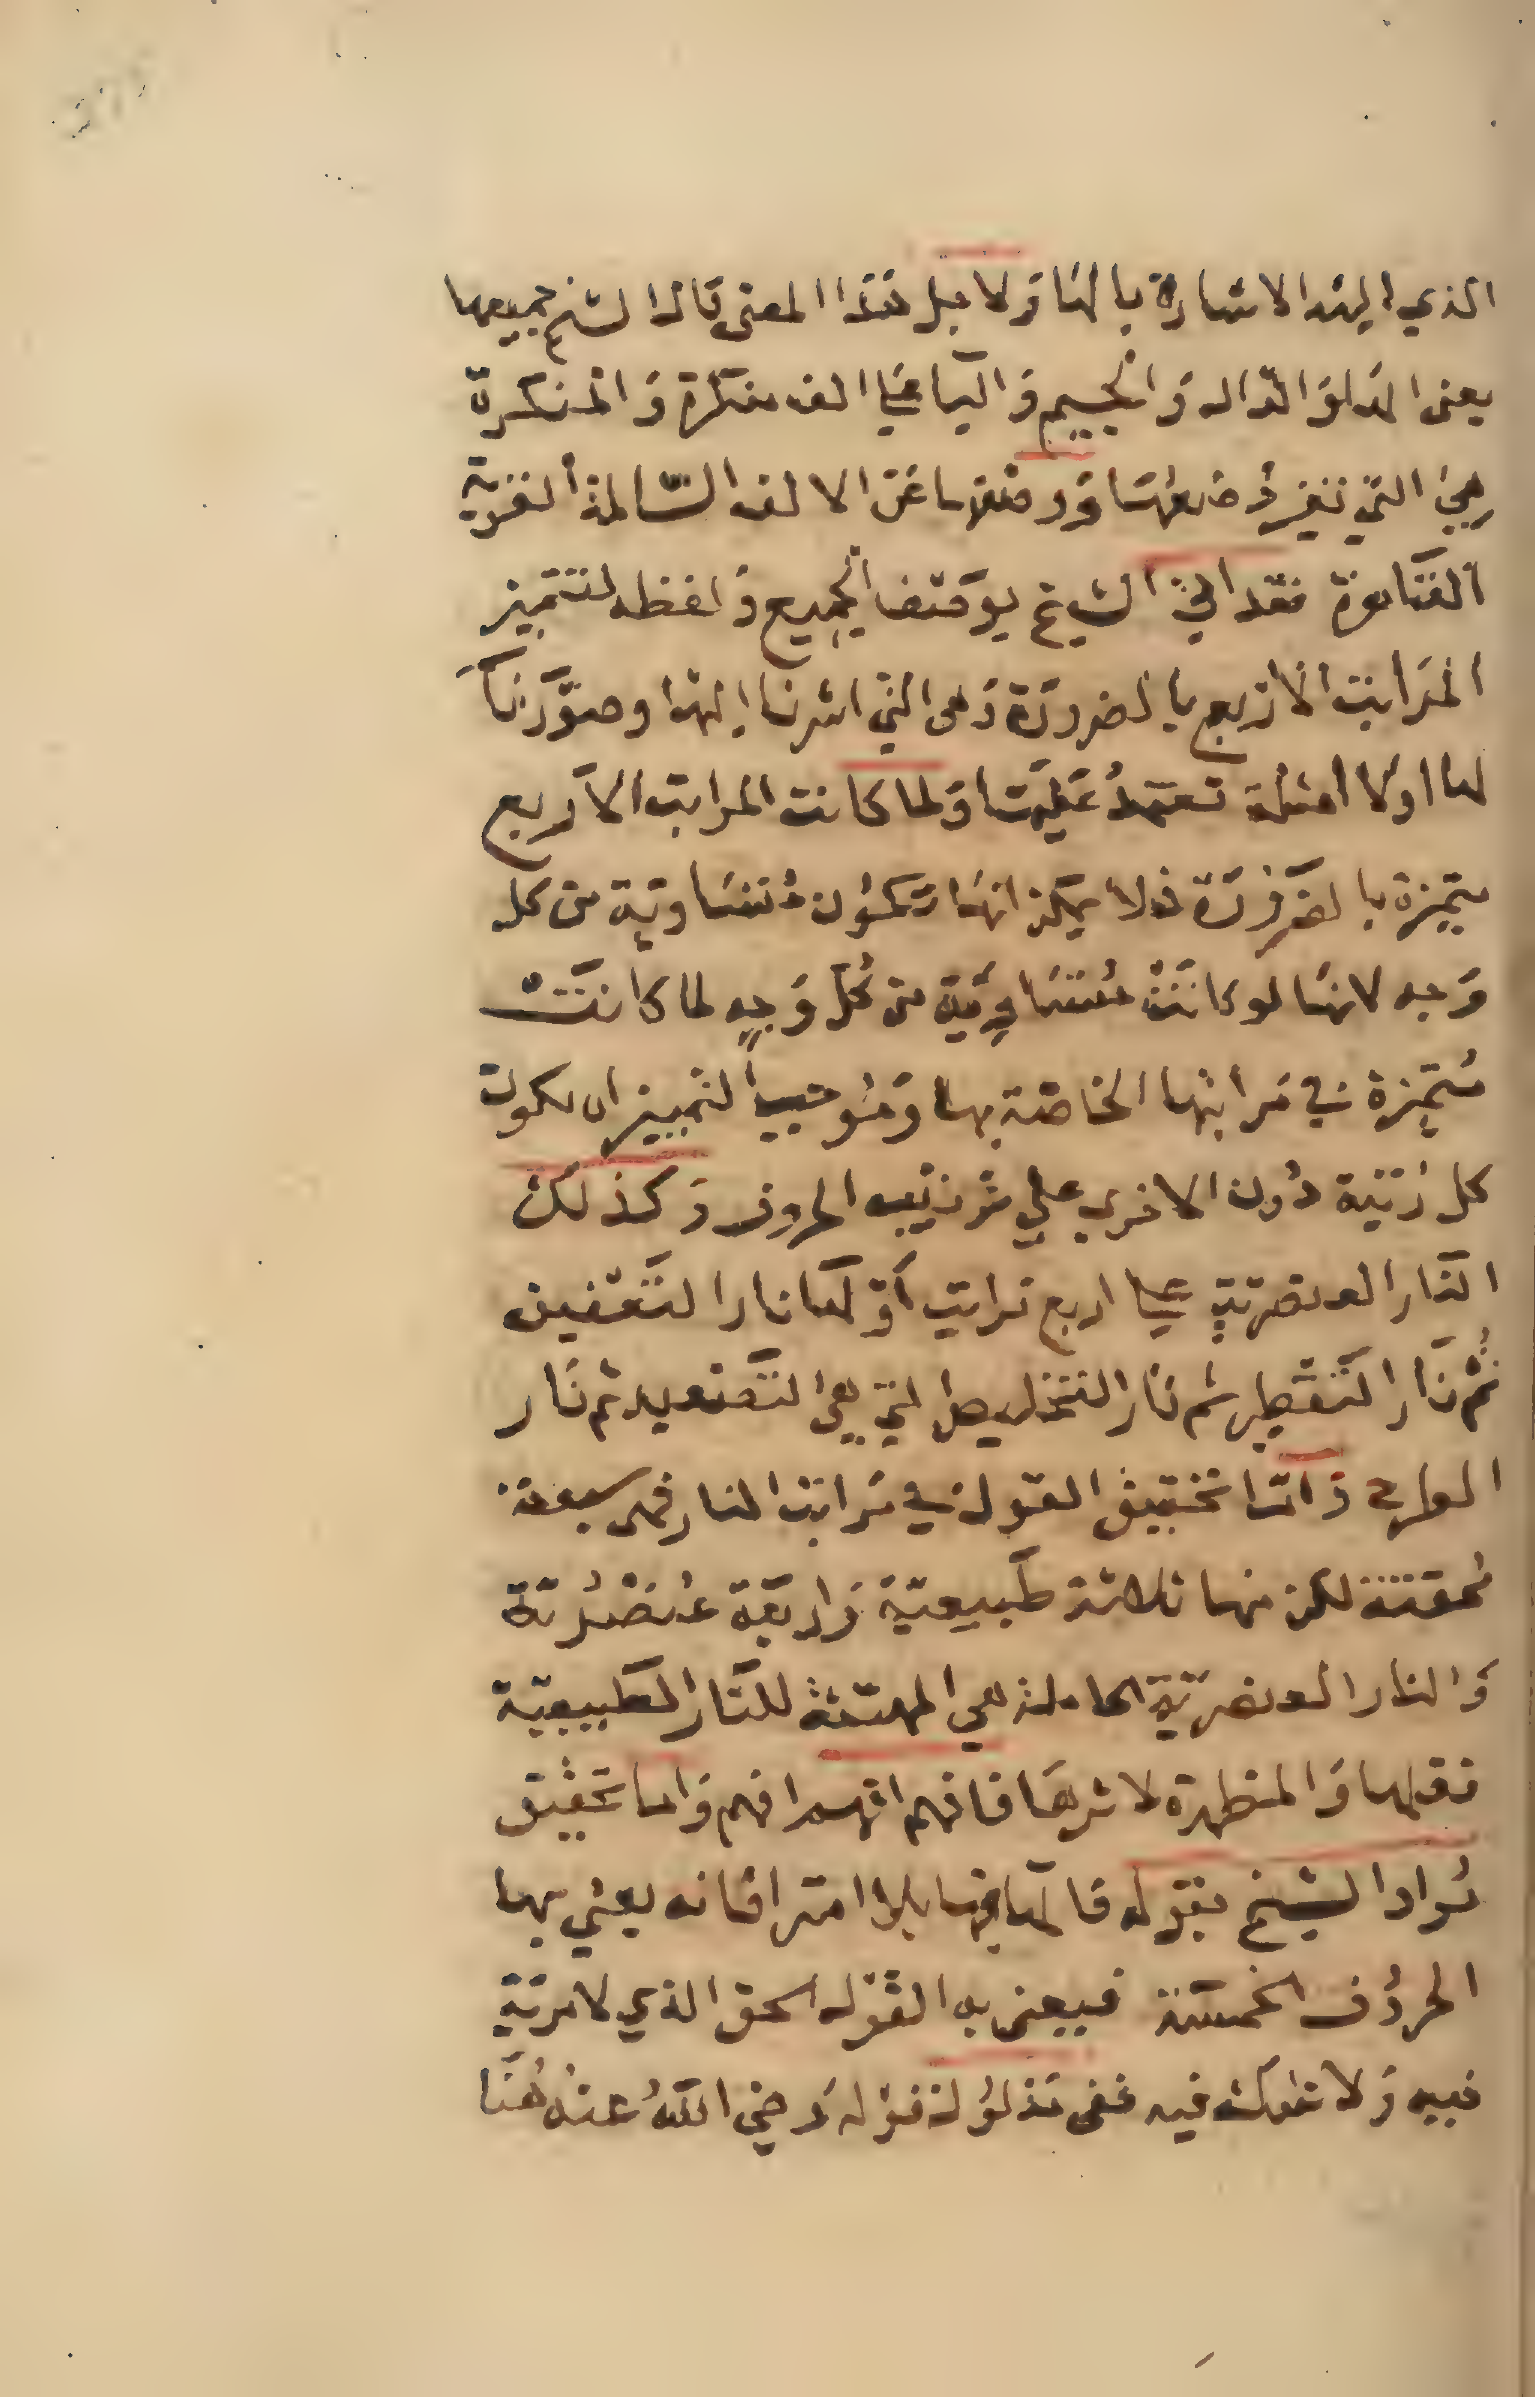 الذي اليه الاشارة بالهَا وَلاجل هَذا المعنى قَال الشيخ جميعها
يعنى الهَا وَالدّال وَالجيم وَاليا في الف منكرة وَالمنكرة
هيَ التي تنفرد وَضعهَا عَن الالف السّالمة القوية
القَاهرة فقد الشيخ الجميع وَلفظه لتتميز
المَراتب الاَربع بالضرورَة وَهى التي اشرنا اليها وصوّرنَا
لها اولا امثلة تعتمدُ عَليهَا وَلما كانت المراتب الاَربع
متميزة بالضرورَة فلا يمكن انهَا تكون مُتسَاويَة من كل
وَجه لانهَا لو كانَتْ مُتسَاويَة من كُل وَجهٍ لما كانَتْ
مُتميزة في مَراتبها الخاصّة بها وَمُوجب التمييز ان يكون
كل رُتبة دُون الاخرى على ترتيب الحروف وَكذلك
النّار العنصريّة على اربع مراتب اَوّلها نار التّعفين
ثُمّ نَار التّقطير ثم نَار التخليص التي هي التّصعيد ثم نَار
العلاج وَاما تحقيق القول في مَراتب النار فهى سبعة
مُحققة لكن منها ثلاثة طَبيعيّة وَاربَعة عُنصُريّة
وَالنار العنصريّة الحاملة هي المهيّجة للنّار الطّبيعيّة
فعلها وَالمظهرة لاثرهَا فافهم افهم افهم وَاما تحقيق
مُراد الشيخ بقوله قَالهَا فهَا بلا امترا فانه يعني بها
الحرُوف الخمسَة فيعنى به القَوْل الحق الذي لا مريَة
فيه وَلا شك فيه ففى مَدلُول قَوله رَضيَ اللّهُ عنهُ هُنَا